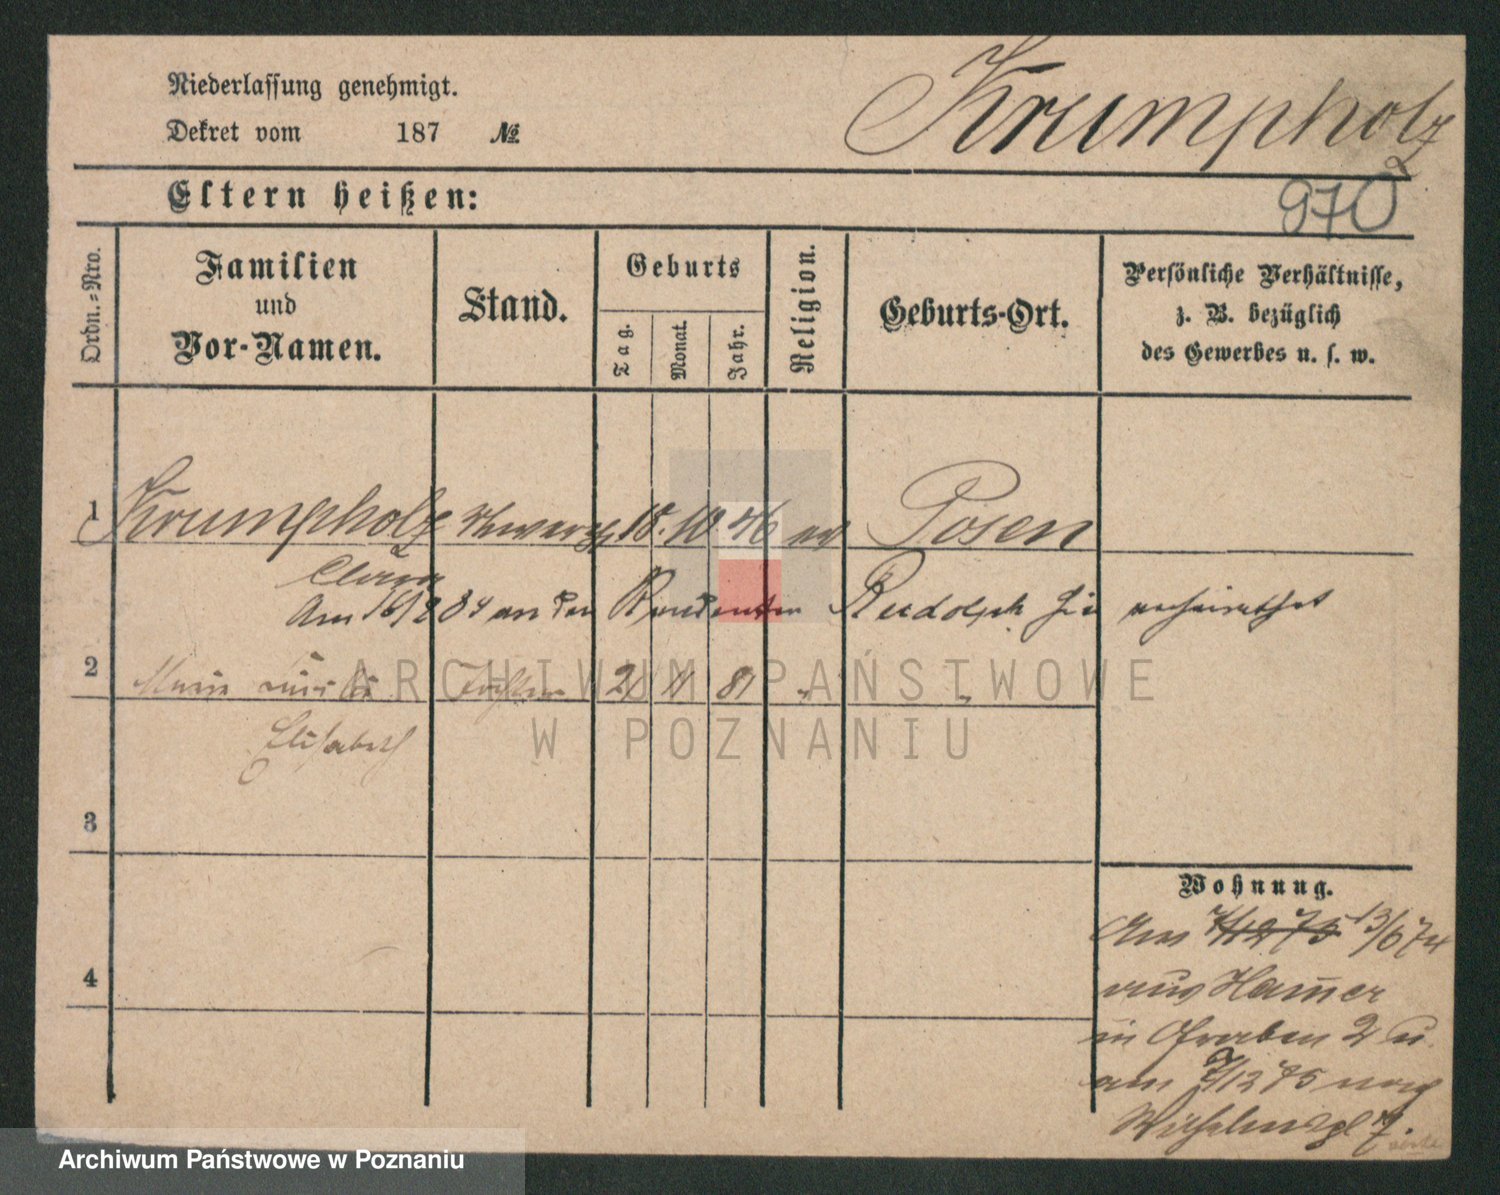 Niederlassung genehmigt.
Dekret vom 187 №
Krumpholz
970
Eltern heißen:
Ordn.-Nro.
Familien und Vor-Namen.
Stand.
Geburts
Tag.
Monat.
Jahr.
Religion.
Geburts-Ort.
Persönliche Verhältnisse,
z. B. bezüglich
des Gewerbes u. s. w.
1 Krumpholz 18. 10. 46 ev Posen
Clara
Am 16/2 84 an den Rendanten Rudolph verheirathet
2 Maria Tochter 21 11 81 " "
Elisabeth
3
4
Wohnung.
Am 7/12 75 13/6 74
aus
in Graben 2 u.
am 7/12 75 nach
Wilhelmspl 7.
ARCHIWUM PAŃSTWOWE
W POZNANIU
Archiwum Państwowe w Poznaniu